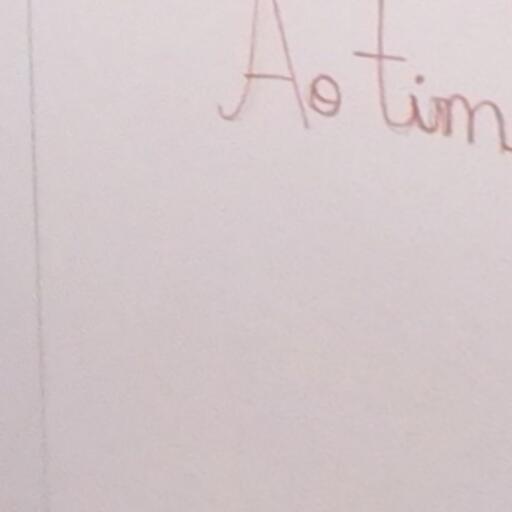 Ao tim